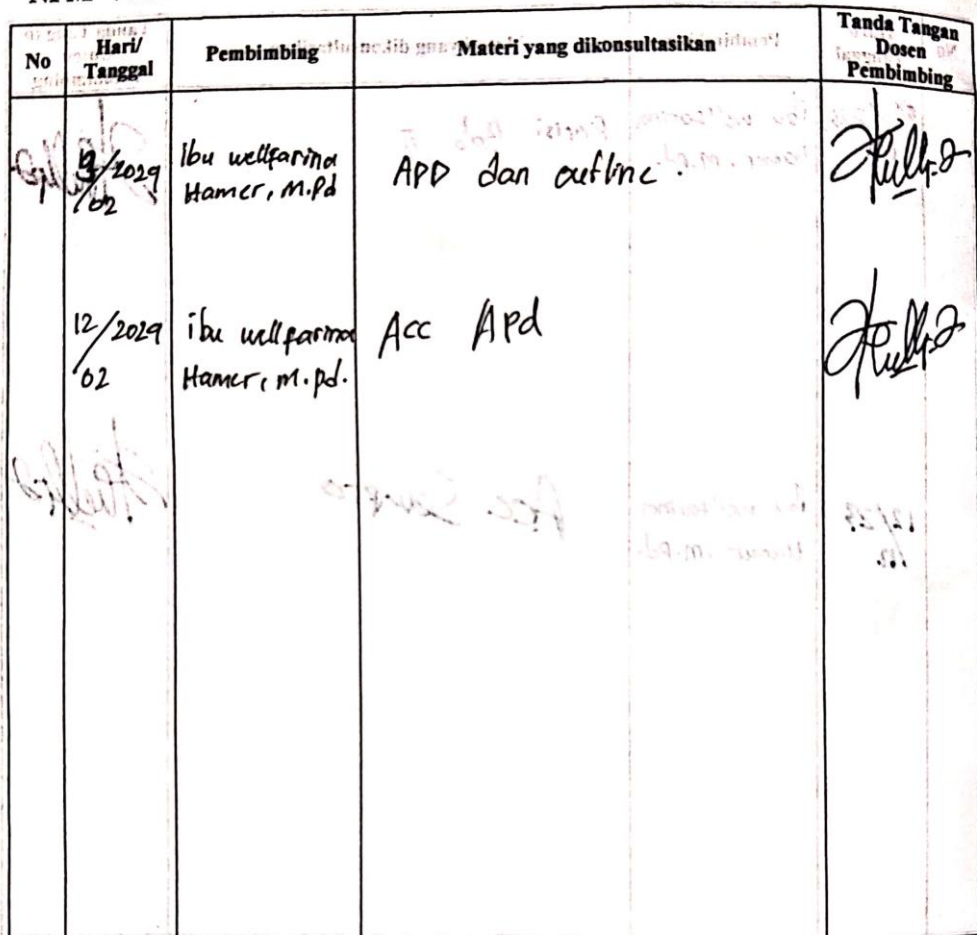 No
Hari/
Tanggal
Pembimbing
Materi yang dikonsultasikan
Tanda Tangan
Dosen
Pembimbing
/2029
02
Ibu wellfarina
Hamer, M.Pd
APD dan outline.
12/2029
02
ibu wellfarina
Hamer, M.pd.
Acc Apd